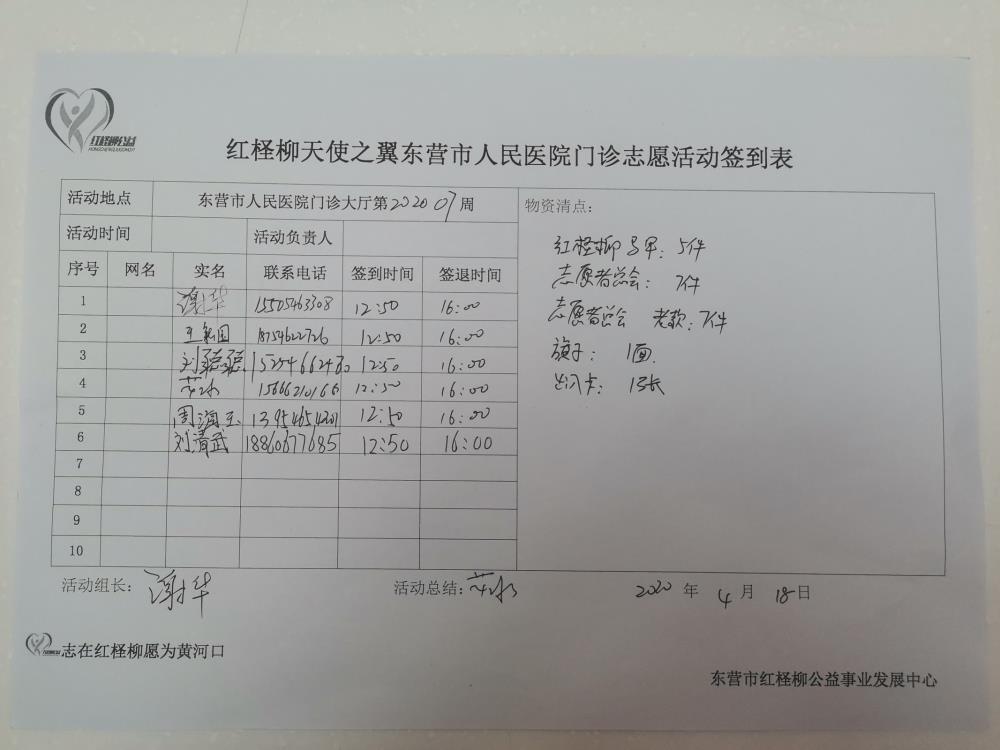 红柽柳公益
HONGCHENGLIUGONGYI
红柽柳天使之翼东营市人民医院门诊志愿活动签到表
活动地点 东营市人民医院门诊大厅第202007周
活动时间 活动负责人
序号 网名 实名 联系电话 签到时间 签退时间
1 谢华 15505463308 12:50 16:00
2 王 国 18754622726 12:50 16:00
3 刘 1525466246 12:50 16:00
4 15666210166 12:50 16:00
5 周海玉 13954654201 12:50 16:00
6 刘清武 18860677685 12:50 16:00
7
8
9
10
物资清点:
红柽柳马甲:5件
志愿者总会:7件
志愿者总会 老款:7件
旗子:1面.
出入卡:1张
活动组长:谢华 活动总结: 2020年4月18日
志在红柽柳愿为黄河口
东营市红柽柳公益事业发展中心